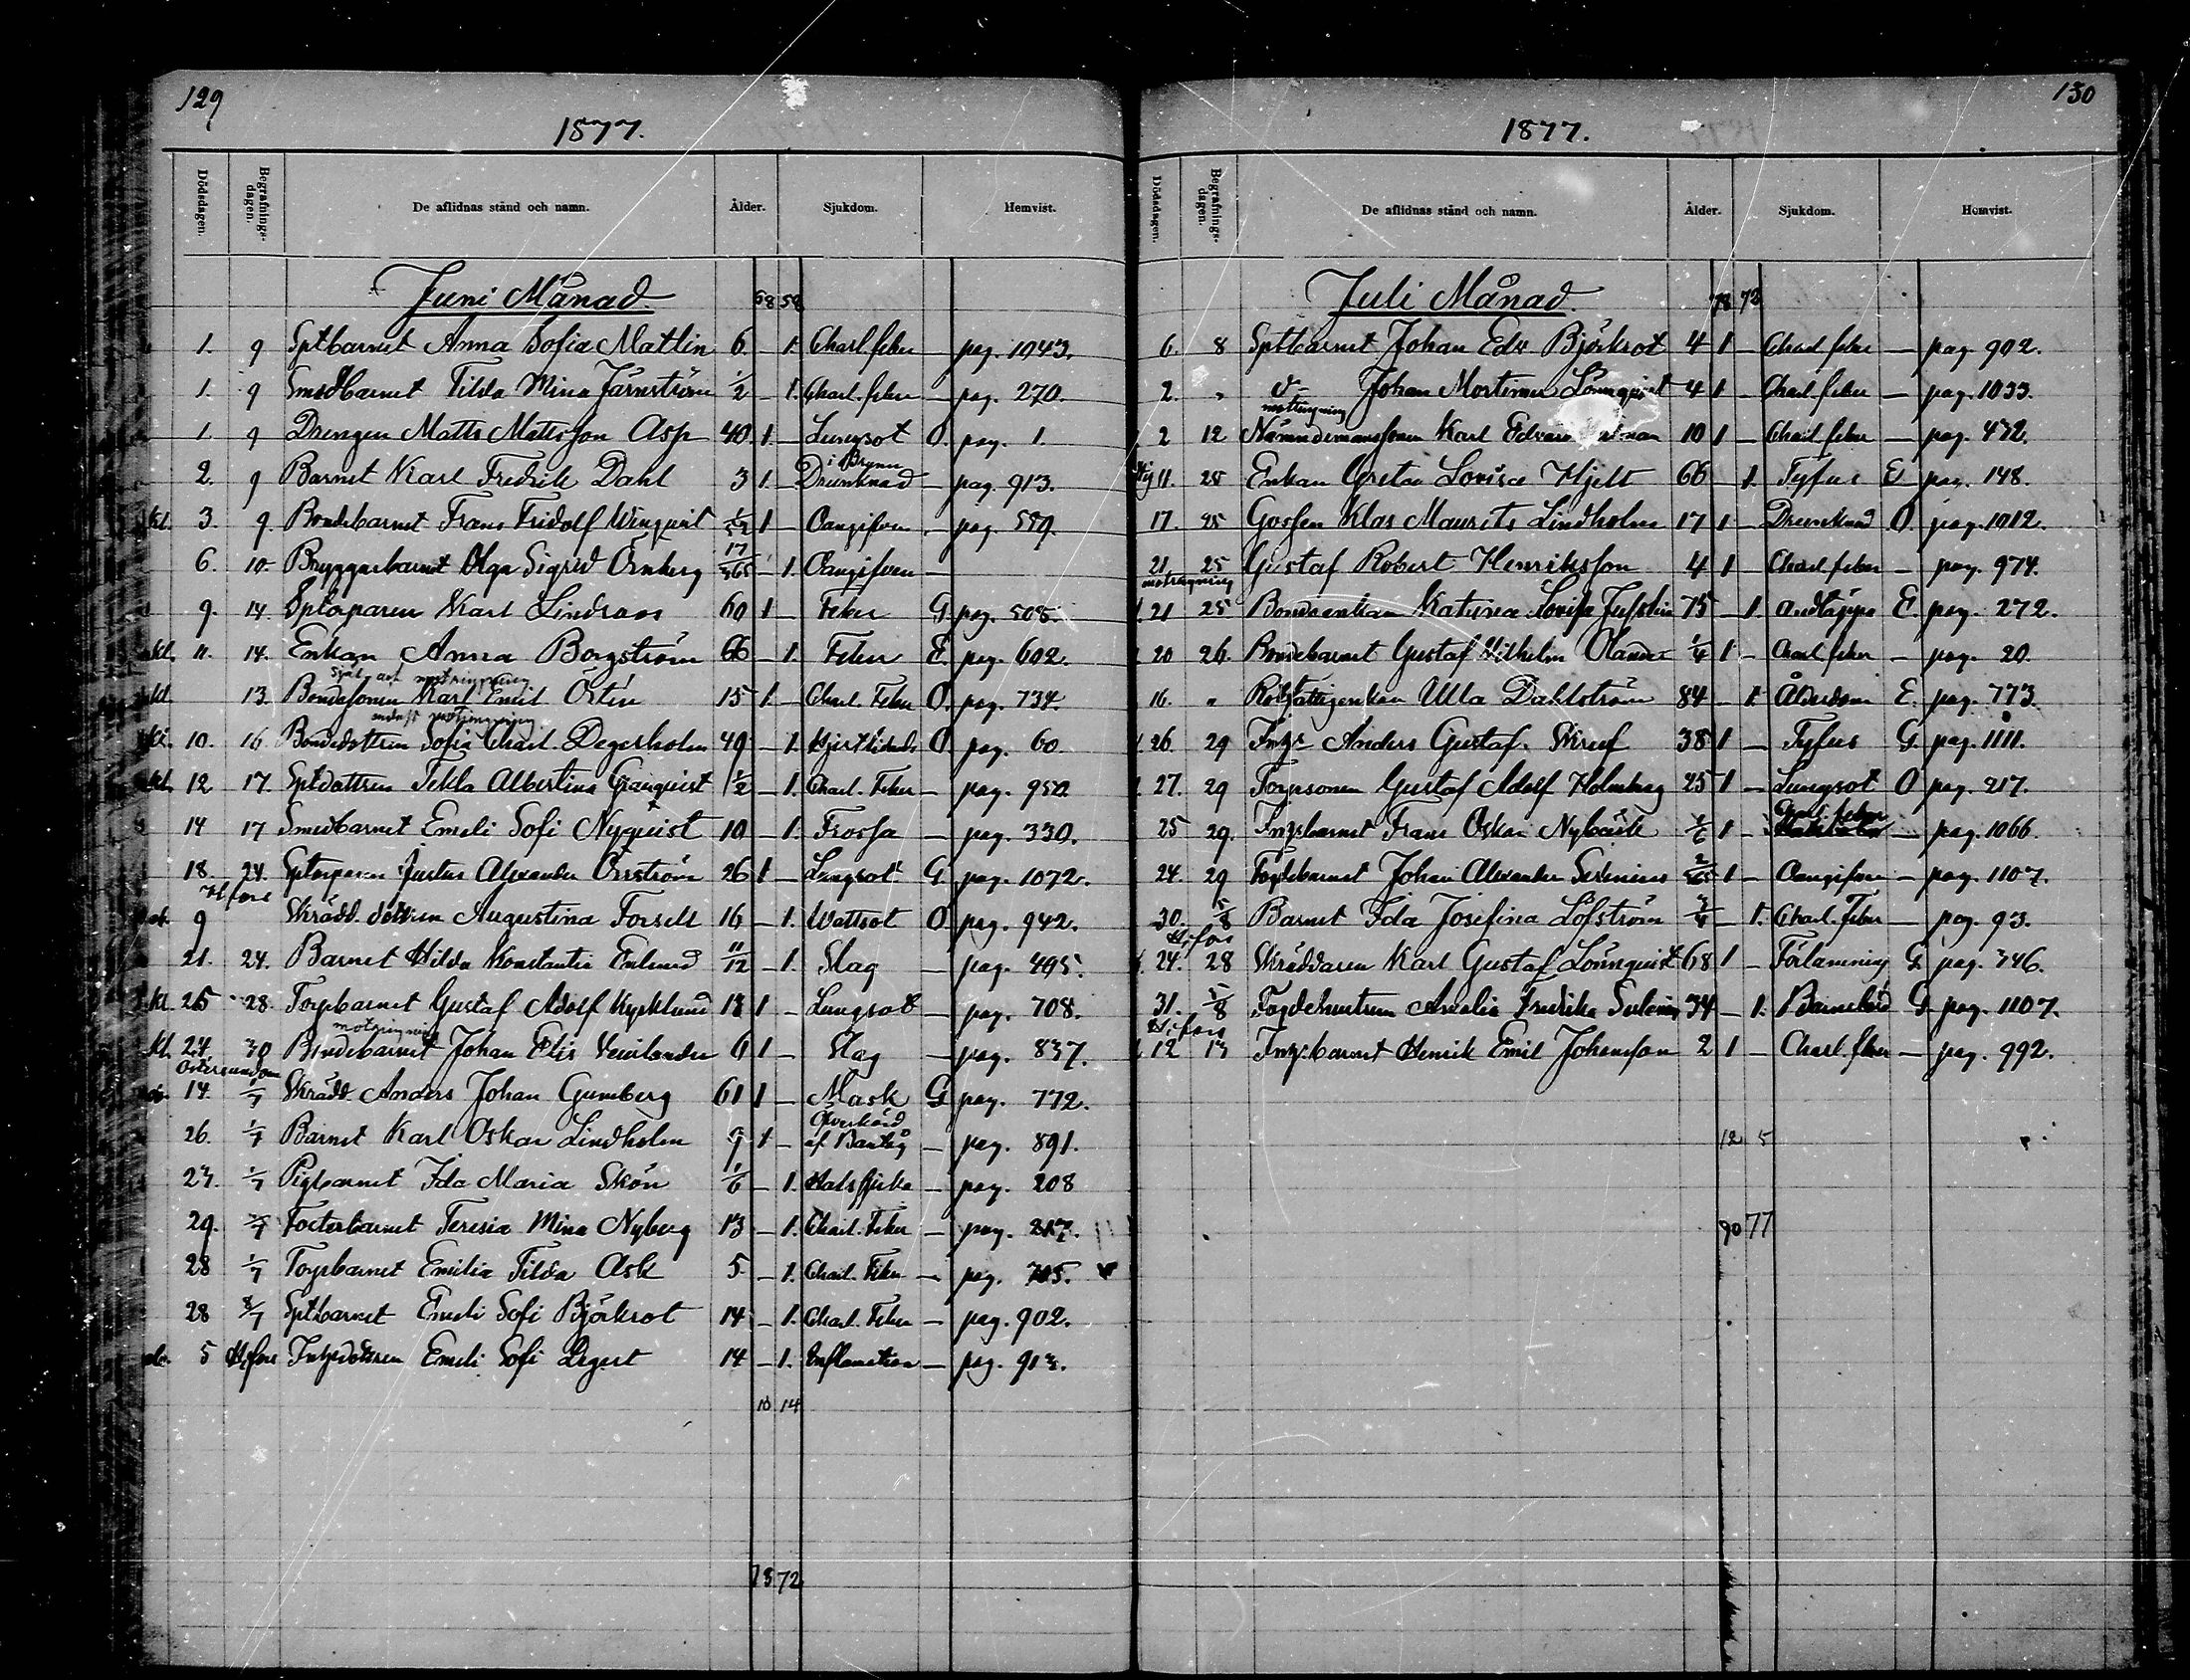 129
1877.
Dödsdagen. Begrafnings-dagen. De aflidnas stånd och namn. Ålder. Sjukdom. Hemvist.
Juni Månad 68 58
1. 9 Sptbarnet Anna Sofia Matlin 6 – 1. Charl. feber – pag. 1043.
1. 9 Smedbarnet Tilda Mina Järnström 1/2 – 1. Charl. feber – pag. 270.
1. 9 Drengen Matts Mattsson Asp 40 1. – Lungsot O. pag. 1.
i Brunn
2. 9 Barnet Karl Fredrik Dahl 3 1. – Drunknad – pag. 913.
3. 9. Bondebarnet Frans Fridolf Winqvist 1 – Oangifven – pag. 559.
6. 10. Bryggarbarnet Olga Sigrid Örnberg 17/365 – 1. Oangifven –
9. 14. Sptorparen Karl Lindroos 60 1 – Feber G. pag. 508.
11. 14. Enkan Anna Borgström 66 – 1. Feber E. pag. 602.
motringning
13. Bondesonen Karl Emil Östén 15 1. – Charl. Feber O. pag. 734.
motringning
10. 16 Bondedottren Sofia Charl. Degerholm 49 – 1. Hjertlidande O. pag. 60
12 17. Sptdottren Tekla Albertina Granqvist 1/2 – 1. Charl. Feber – pag. 952
14 17 Smedbarnet Emeli Sofi Nyqvist 10 – 1. Frossa – pag. 330.
18. 24. Sptorparen Justus Alexander Örström 26 1 – Lungsot G. pag. 1072.
H:fors
9 Skrädd. dottren Augustina Forsell 16 – 1. Wattsot O pag. 942.
21. 24. Barnet Hilda Konstantia Enlund 11/12 – 1. Slag – pag. 495.
25 28. Torpbarnet Gustaf Adolf Kycklund 13 1 – Lungsot – pag. 708.
motringning
24. 30 Bondebarnet Johan Elis 6 1 – Slag – pag. 837.
Östersundom
14. 1/7 Skrädd. Anders Johan Gumberg 61 1 – Mask G pag. 772.
Öfverkörd
26. 1/7 Barnet Karl Oskar Lindholm 9 1 – af Bantåg – pag. 891.
27. 1/7 Pigbarnet Ida Maria Skön 1/6 – 1. Halssjuka – pag. 208
29. /7 Fosterbarnet Teresia Mina Nyberg 13 – 1. Charl. Feber – pag. 217.
28 1/7 Torpbarnet Emilia Tilda Ask 5 – 1. Charl. Feber – pag. 705.
28 8/7 Sptbarnet Emeli Sofi Björkrot 14 – 1. Charl. Feber – pag. 902.
5 H:fors Inhysdottren Emeli Sofi Degert 14 – 1. Inflamation – pag. 913.
10 14
78 72
130
1877.
Dödsdagen. Begrafnings-dagen. De aflidnas stånd och namn. Ålder. Sjukdom. Hemvist.
Juli Månad. 78 72
6. 8 Sptbarnet Johan Edv. Björkrot 4 1 – Charl. feber – pag. 902.
2. " d– Johan Mortimer Lönnqvist 4 1 – Charl. feber – pag. 1033.
motringning
2 12 Nämndemanssonen Karl Edvard 10 1 – Charl. feber – pag. 432.
11. 25 Enkan Greta Lovisa Hjelt 66 1. Tyfus E. pag. 148.
17. 25 Gossen Klas Maurits Lindholm 17 1 – Drunknad O. pag. 1012.
21. 25 Gustaf Robert Henriksson 4 1 – Charl. feber – pag. 974.
motringning
21 25 Bondeenkan Katarina Lovisa 75 – 1. Andtäppa E. pag. 272.
20 26. Bondebarnet Gustaf Wilhelm Olander 1/4 1 – Charl. feber – pag. 20.
16. " Rotfattigenkan Ulla Dahlström 84 – 1. Ålderdom E. pag. 773.
26 29 Inhys Anders Gustaf Skruf 38 1 – Tyfus G. pag. 1111.
27. 29 Torpsonen Gustaf Adolf Holmberg 25 1 – Lungsot O pag. 217.
25 29. Inhysbarnet Frans Oskar Nybäck 1/6 1 – Charl. feber – pag. 1066.
24. 29 Fogdebarnet Johan Alexander Selenius 1 – Oangifven – pag. 1107.
30. 5/8 Barnet Ida Josefina Löfström 3/4 – 1. Charl. Feber – pag. 93.
H:fors
24. 28 Skräddaren Karl Gustaf Lönnqvist 68 1 – Förlamning G. pag. 346.
31. 5/8 Fogdehustrun Amalia Fredrika Selenius 34 – 1. Barnsbörd G. pag. 1107.
H:fors
12 13 Inhysbarnet Henrik Emil Johansson 2 1 – Charl. feber – pag. 992.
12 5
90 77